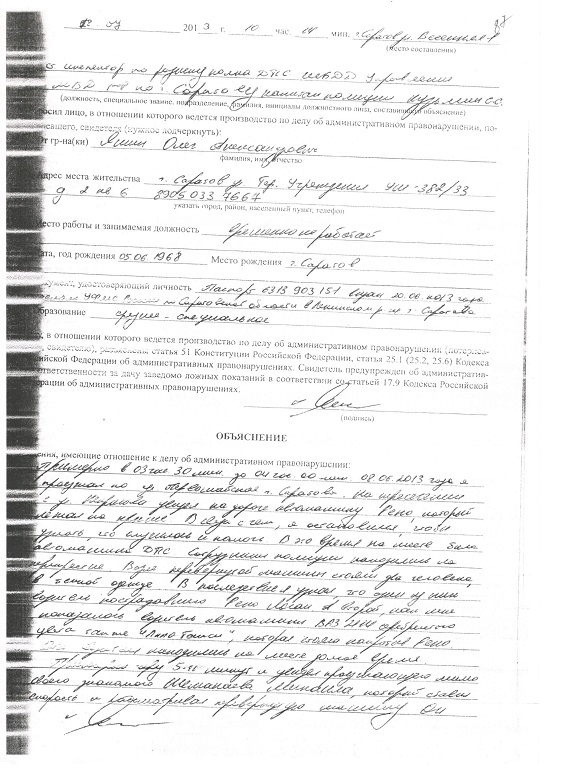 07 2013 г. 10 час. 00 мин. г. Саратов
(место составления)
инспектор по розыску полка ДПС
г. Саратову капитан полиции Кузьмин С.С.
(должность, специальное звание, подразделение, фамилия, инициалы должностного лица, составившего объяснение)
осил лицо, в отношении которого ведется производство по делу об административном правонарушении, по-
певшего, свидетеля (нужное подчеркнуть):
От гр-на(ки) Олег Александрович
фамилия, имя, отчество
Адрес места жительства г. Саратов Учреждения УШ-382/33
д 2 кв 6. 8905 033 7667
указать город, район, населенный пункт, телефон
Место работы и занимаемая должность временно не работает
ата, год рождения 05.06.1968 Место рождения г. Саратов
умент, удостоверяющий личность Паспорт 6313 903151 выдан 20.06.2013 года
УФМС России по Саратовской области в Ленинском р-не г. Саратова
бразование средне-специальное
, в отношении которого ведется производство по делу об административном правонарушении (потерпев-
, свидетелю), разъяснены, статья 51 Конституции Российской Федерации, статья 25.1 (25.2, 25.6) Кодекса
ийской Федерации об административных правонарушениях. Свидетель предупрежден об административ-
ответственности за дачу заведомо ложных показаний в соответствии со статьей 17.9 Кодекса Российской
ерации об административных правонарушениях.
(подпись)
ОБЪЯСНЕНИЕ
ения, имеющие отношение к делу об административном правонарушении:
Примерно в 03 час 30 мин. до 04 час. 00 мин. 08.06.2013 года я
проезжал по ул. Первомайской г. Саратова. На пересечении
с ул. увидел на дороге автомашину Рено, который
лежал на крыше. В связи с чем, я остановился, чтобы
узнать, что случилось и помочь. В это время на месте была
автомашина ДПС. Сотрудники полиции находились на
перекрестке. Возле перевернутой машины стояли два человека,
в темной одежде. В последствии я узнал, что один из них
водитель пострадавшего Рено Логан. А второй, как мне
показалось водитель автомашины ВАЗ серебристого
цвета такси которая стояла напротив Рено.
находились на месте долгое время.
5-10 минут и увидел проезжающего мимо
своего знакомого Михаила, который сбавил
скорость и рассматривал перевернутую машину. Он